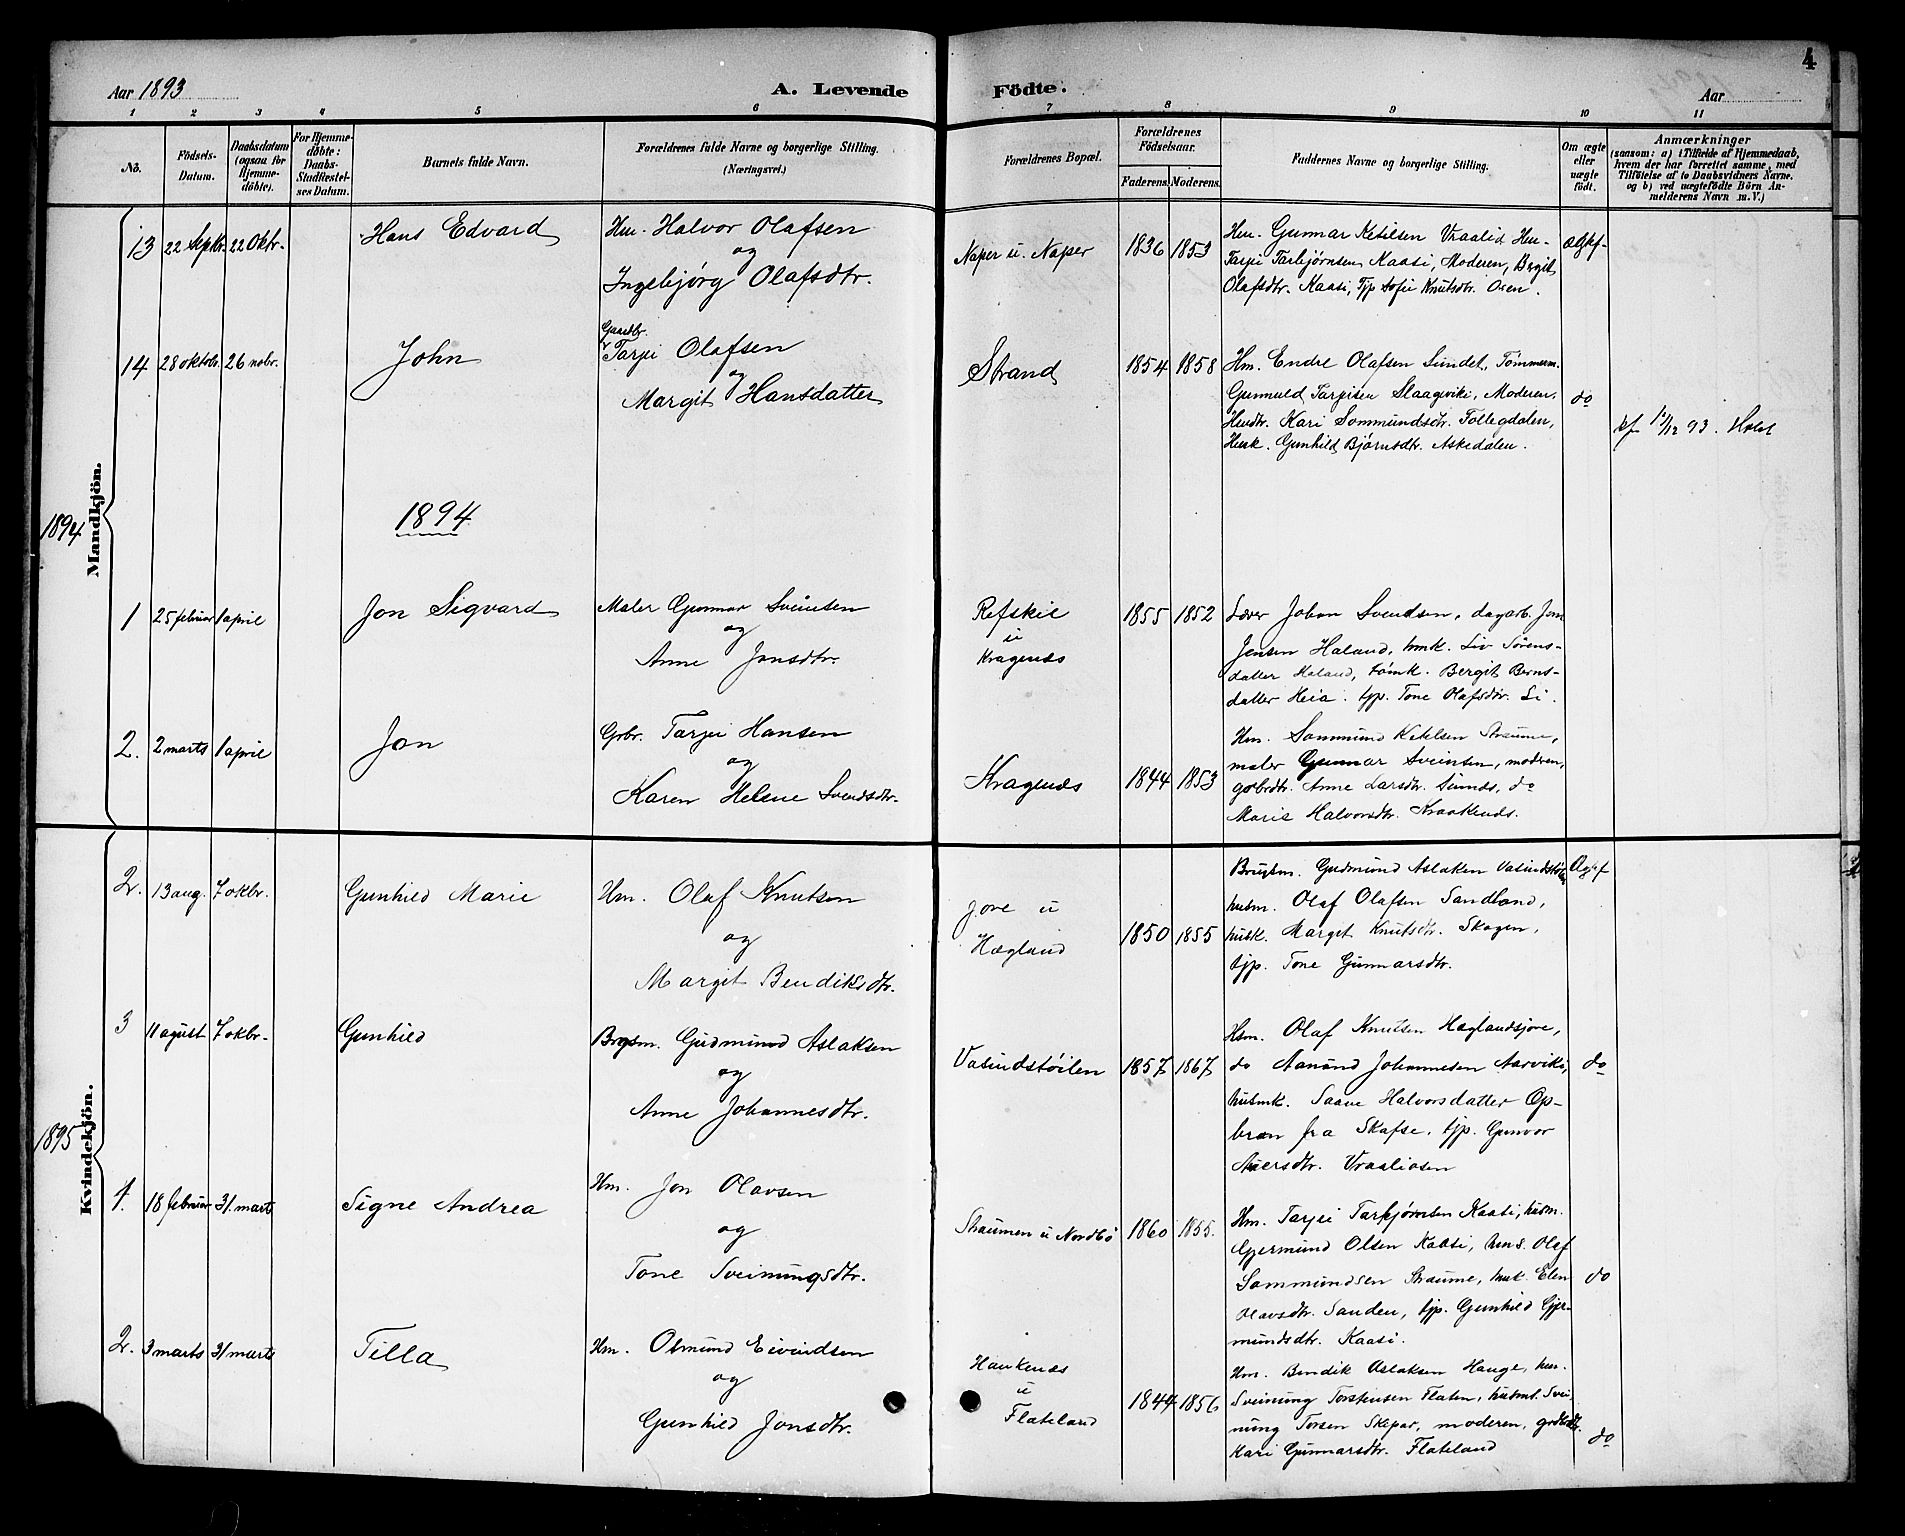 4
Aar 1893
A. Levende
Födte.
Aar
1 2 3 4 5 6 7 8 9 10 11
No.
Födsels-Datum.
Daabsdatum (ogsaa for Hjemme-döbte).
For Hjemme-döbte: Daabs-Stadfæstel-ses Datum.
Barnets fulde Navn.
Forældrenes fulde Navne og borgerlige Stilling. (Næringsvei.)
Forældrenes Bopæl.
Forældrenes Födselsaar.
Faderens. Moderens.
Faddernes Navne og borgerlige Stilling.
Om ægte eller uægte født.
Anmærkninger
(saasom: a) i Tilfælde af Hjemmedaab,
hvem der har forrettet samme, med
Tilföielse af to Daabsvidners Navne.
og b) ved uægtefödte Börn An-
melderens Navn m. V.)
Mandkjön.
1894
13 22 Septbr. 22 Oktbr. Hans Edvard
Hm. Halvor Olafsen
og
Ingebjörg Olafsdtr.
Naper u. Naper 1836 1853
Hm. Gunnar Ketilsen Vraalid, Hm.
Tarjei Tarbjørnsen Kaasi, Moderen, Bergit
Olafsdtr. Kaasi, Tjp Sofie Knutsdtr. Osen.
14 28 oktobr. 26 nobr. John
Gaardbr.
Tarjei Olafsen
og
Margit Hansdatter
Strand 1854 1858
Hm. Endre Olafsen Sundet, Tömmerm.
Gunnuld Tarjeisen Slaageviki, Moderen,
Hmdtr. Kari Sommundsdtr. Follegdalen,
Husk. Gunhild Bjørnsdtr. Askedalen.
do
12/12 93. Holst
1894
1 25 februar 1 april Jon Sigvard
Maler Gunnar Sveinsen
og
Anne Jonsdtr.
Refskil
u
Kragenæs
1855 1852
Lærer Johan Svendsen, dagarb. Jon
Jensen Haland, hmk. Liv Sørens-
datter Haland, tömk. Bergit Berns-
datter Heia. tjp. Tone Olafsdtr. Li.
2. 2 marts 1 april Jon
Grbr. Tarjei Hansen
og
Karen Helene Svendsdtr.
Kragenæs 1844 1853
Hm. Sommund Ketelsen Straume,
maler Gunnar Sveinsen, moderen,
gbrdtr. Anne Larsdtr. Sundes, do
Marie Halvorsdtr. Kraakenæs.
Kvindekjön.
1895
2. 13 aug. 7 okbr. Gunhild Marie
Hm. Olaf Knutsen
og
Margit Bendiksdtr.
Jore u
Hægland
1850 1855
Brugsm. Gudmund Aslaksen Vasundstöilen
husm. Olaf Olafsen Sandland,
husk. Margit Knutsdtr. Skogen,
tjp. Tone Gunnarsdtr.
3 11 agust 7 okbr. Gunhild
Brgsm. Gudmund Aslaksen
og
Anne Johannesdtr.
Vasundstöilen 1857 1867
Hsm. Olaf Knutsen Hæglandsjore,
do Aanund Johannesen Aarviki,
husmk. Saave Halvorsdatter Op-
bræn fra Skafse, tjp. Gunvor
Aversdtr. Vraaliosen
do
1. 18 februar 31. marts Signe Andrea
Hm. Jon Olavsen
og
Tone Sveinungsdtr.
Straumen u Nordbö 1860 1855.
Hm. Tarjei Tarkjørnsen Kaasi, husm.
Gjermund Olsen Kaasi, hms. Olaf
Sommundsen Straume, husk. Elen
Olavsdtr. Sanden, tjp. Gunhild Gjer-
mundsdtr. Kaasi.
do
2. 3 marts 31 marts Tilla
Hm. Osmund Eivindsen
og
Gunhild Jonsdtr.
Haukenæs
u
Flateland
1844 1856
Hm. Bendik Aslaksen Hauge, hm.
Sveinung Torsteinsen Flaten, husmt. Svei-
nung Torsen Skepar, moderen, grdbrdtr.
Kari Gunnarsdtr. Flateland
do